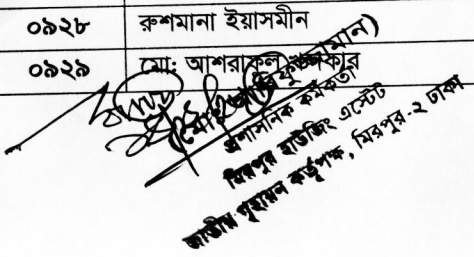 ০৯২৮ রুশমানা ইয়াসমীন
০৯২৯ মো: আশরাফুল
প্রশাসনিক কর্মকর্তা
মিরপুর হাউজিং এস্টেট
জাতীয় গৃহায়ন কর্তৃপক্ষ, মিরপুর-২ ঢাকা